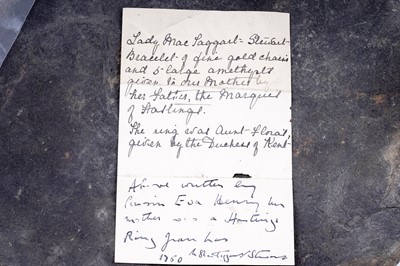 Lady Mac Taggart-Stewart
Bracelet of fine gold chains
and 5 large amethysts
given to our Mother by
her Father, the Marquess
of Hastings.
The ring was Aunt Flora's,
given by the Duchess of Kent
Above written by
Cousin Eva Henry her
mother was a Hastings
Ring Jean has
1950